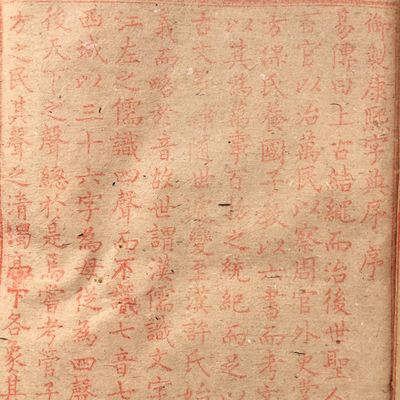 御製康熙字典序序
易傳曰上古結繩而治後世聖人
百官以治萬民以察周官外史掌
方保氏養國子教以六書而考
以其為萬事百物之統紀而足以
古文隨世遞變至漢許氏始
義而略於音故世謂漢儒識文字
江左之儒識四聲而不識七音七
西域以三十六字為母從為四聲
後天下之聲總於是焉嘗考管子
方之民其聲之清濁高下各象其